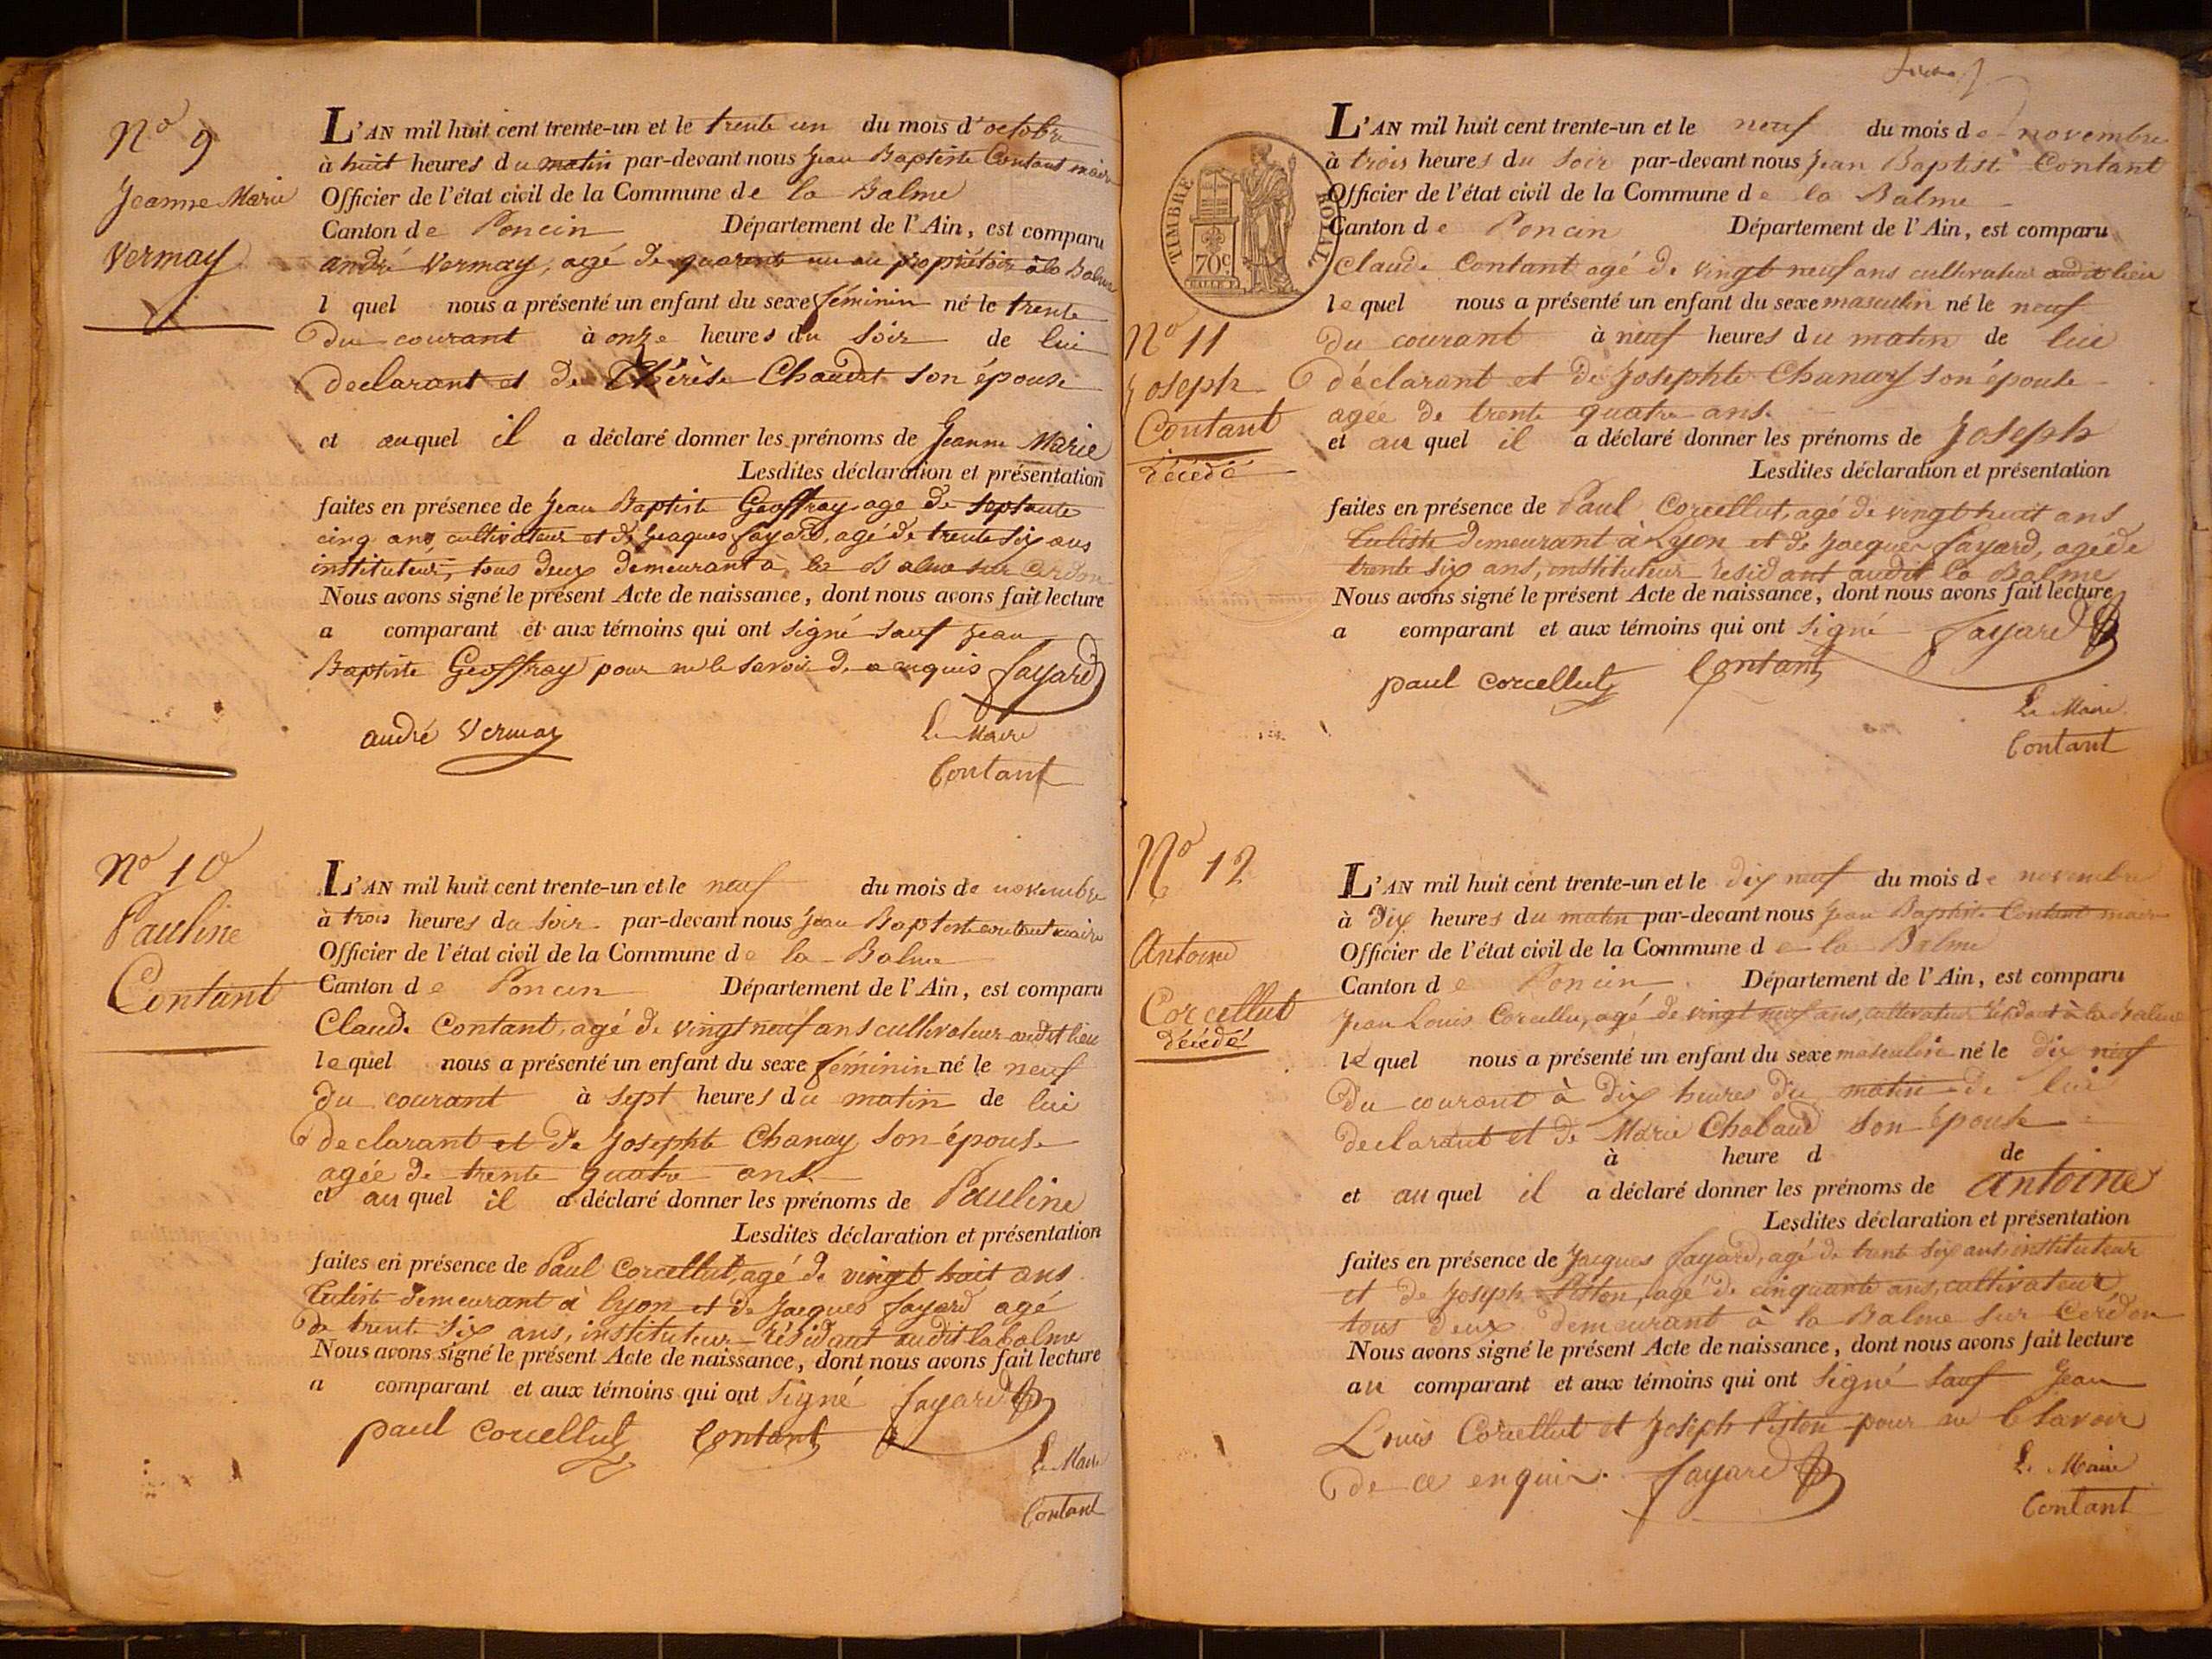 N° 9
Jeanne Marie
Vermay
L'AN mil huit cent trente-un et le trente un du mois d'octobre
à huit heures du matin par-devant nous Jean Baptiste Contant maire
Officier de l'état civil de la Commune de la Balme
Canton de Poncin Département de l'Ain, est comparu
andré Vermay, agé de quarente un an propriétaire à la Balme
l quel nous a présenté un enfant du sexe féminin né le trente
du courant à onze heures du soir de lui
declarant et de Thérèse Chaudet son épouse
et auquel il a déclaré donner les prénoms de Jeanne Marie
Lesdites déclaration et présentation
faites en présence de Jean Baptiste Geoffray age de septante
cinq ans cultivateur et de Jacques fayard, agé de trente six ans
instituteur, tous deux demeurant à la Balme sur Cerdon
Nous avons signé le présent Acte de naissance, dont nous avons fait lecture
a comparant et aux témoins qui ont signé sauf Jean
Baptiste Geoffray pour ne le savoir de a enquis fayard
andré Vermay
Le Maire
Contant
N° 10
Pauline
Contant
L'AN mil huit cent trente-un et le neuf du mois de novembre
à trois heures du soir par-devant nous Jean Baptiste contant maire
Officier de l'état civil de la Commune de la Balme
Canton de Poncin Département de l'Ain, est comparu
Claude Contant, agé de vingt neuf ans cultivateur audit lieu
lequel nous a présenté un enfant du sexe féminin né le neuf
du courant à sept heures du matin de lui
declarant et de Josephte Chanay son épouse
agée de trente quatre ans
et au quel il a déclaré donner les prénoms de Pauline
Lesdites déclaration et présentation
faites en présence de Paul Corcellut, agé de vingt huit ans
tuliste demeurant à lyon et de Jacques fayard agé
de trente six ans, instituteur résidant audit la balme
Nous avons signé le présent Acte de naissance, dont nous avons fait lecture
a comparant et aux témoins qui ont signé fayard
paul corcellut Contant
Le Maire
Contant
TIMBRE ROYAL
70c
L'AN mil huit cent trente-un et le neuf du mois de novembre
à trois heures du soir par-devant nous Jean Baptiste Contant
Officier de l'état civil de la Commune de la Balme
Canton de Poncin Département de l'Ain, est comparu
Claude Contant agé de vingt neuf ans cultivateur audit lieu
lequel nous a présenté un enfant du sexe masculin né le neuf
N° 11
Joseph
Contant
décédé
du courant à neuf heures du matin de lui
déclarant et de Josephte Chanay son épouse
agée de trente quatre ans.
et au quel il a déclaré donner les prénoms de Joseph
Lesdites déclaration et présentation
faites en présence de Paul Corcellut, agé de vingt huit ans
tuliste demeurant à Lyon et de Jacques fayard, agé de
trente six ans, instituteur résidant audit la Balme
Nous avons signé le présent Acte de naissance, dont nous avons fait lecture
a comparant et aux témoins qui ont signé fayard
paul corcellut Contant
Le Maire
Contant
N° 12
Antoine
Corcellut
décédé
L'AN mil huit cent trente-un et le dix neuf du mois de novembre
à dix heures du matin par-devant nous Jean Baptiste Contant maire
Officier de l'état civil de la Commune de la Balme
Canton de Poncin Département de l'Ain, est comparu
Jean Louis Corcellu, agé de vingt neuf ans, cultivateur résidant à la Balme
le quel nous a présenté un enfant du sexe masculin né le dix neuf
du courant à dix heures du matin de lui
declarant et de Marie Chaland son épouse
à heure d de
et au quel il a déclaré donner les prénoms de antoine
Lesdites déclaration et présentation
faites en présence de Jacques fayard, agé de trente six ans instituteur
et de Joseph Piston, agé de cinquante ans, cultivateur
tous deux demeurant à la Balme sur Cerdon
Nous avons signé le présent Acte de naissance, dont nous avons fait lecture
au comparant et aux témoins qui ont signé sauf Jean
Louis Corcellut et Joseph Piston pour ne le savoir
de ce enquis. fayard
Le Maire
Contant